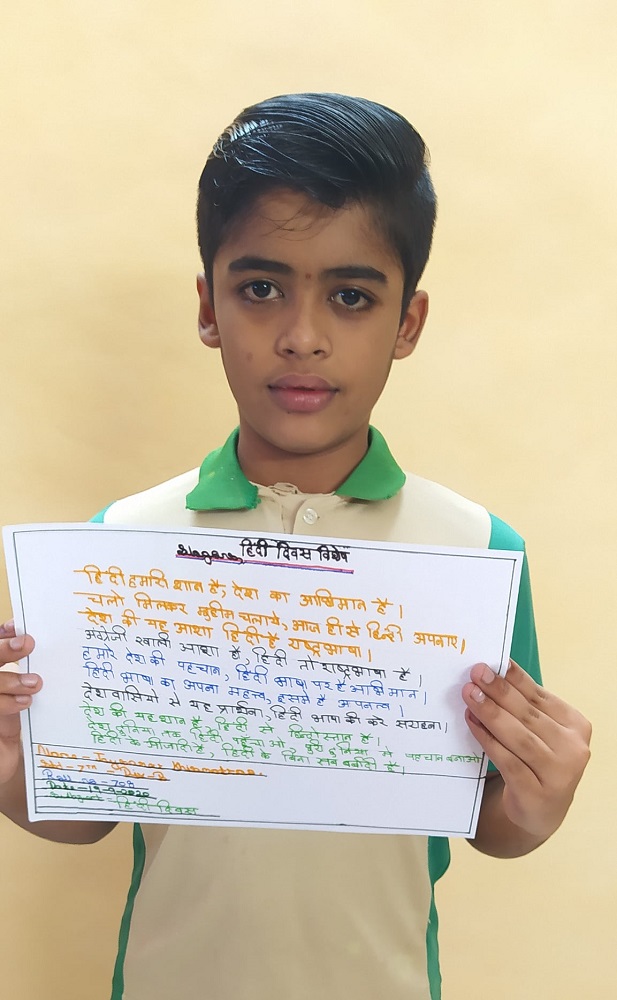 Slogans, हिंदी दिवस विशेष
हिंदी हमारी शान है, देश का अभिमान है।
चलो मिलकर मुहीम चलाये, आज ही से हिन्दी अपनाए।
देश की यह आशा हिंदी है राष्ट्रभाषा।
अंग्रेजी खाली आशा है, हिंदी तो राष्ट्रभाषा है।
हमारे देश की पहचान, हिंदी भाषा पर है अभिमान।
हिंदी भाषा का अपना महत्त्व, इसमें है अपनत्व।
देशवासियो से यह प्रार्थना, हिंदी भाषा की करे सराहना।
देश की यह शान है, हिंदी से हिन्दोस्तान है।
देश दुनिया तक हिंदी पहुँचाओ पहचान बनाओ
हिंदी के आजादी है, हिंदी के बिना सब बर्बादी है।
Name -
Std - 7th Div - D
Roll no - 704
Date - 14-9-2020
Subject - हिंदी दिवस